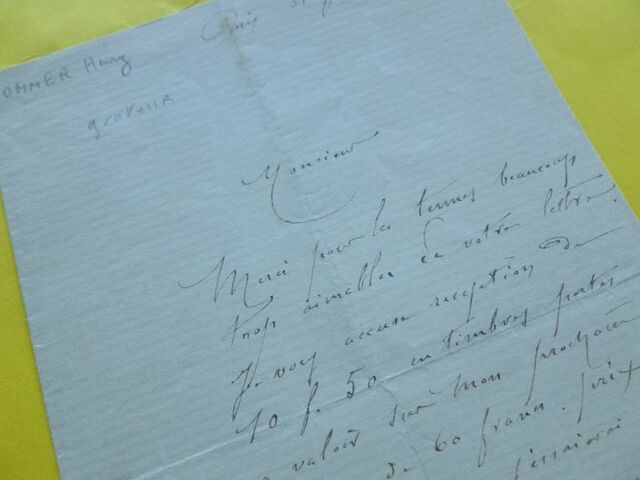 OMMER Henry
graveur
Paris 31
Monsieur
Merci pour les termes beaucoup
trop aimables de votre lettre.
Je vous accuse reception de
10 f. 50 en timbres postes
a valoir sur mon prochain
de 60 francs. prix
J'essaierai